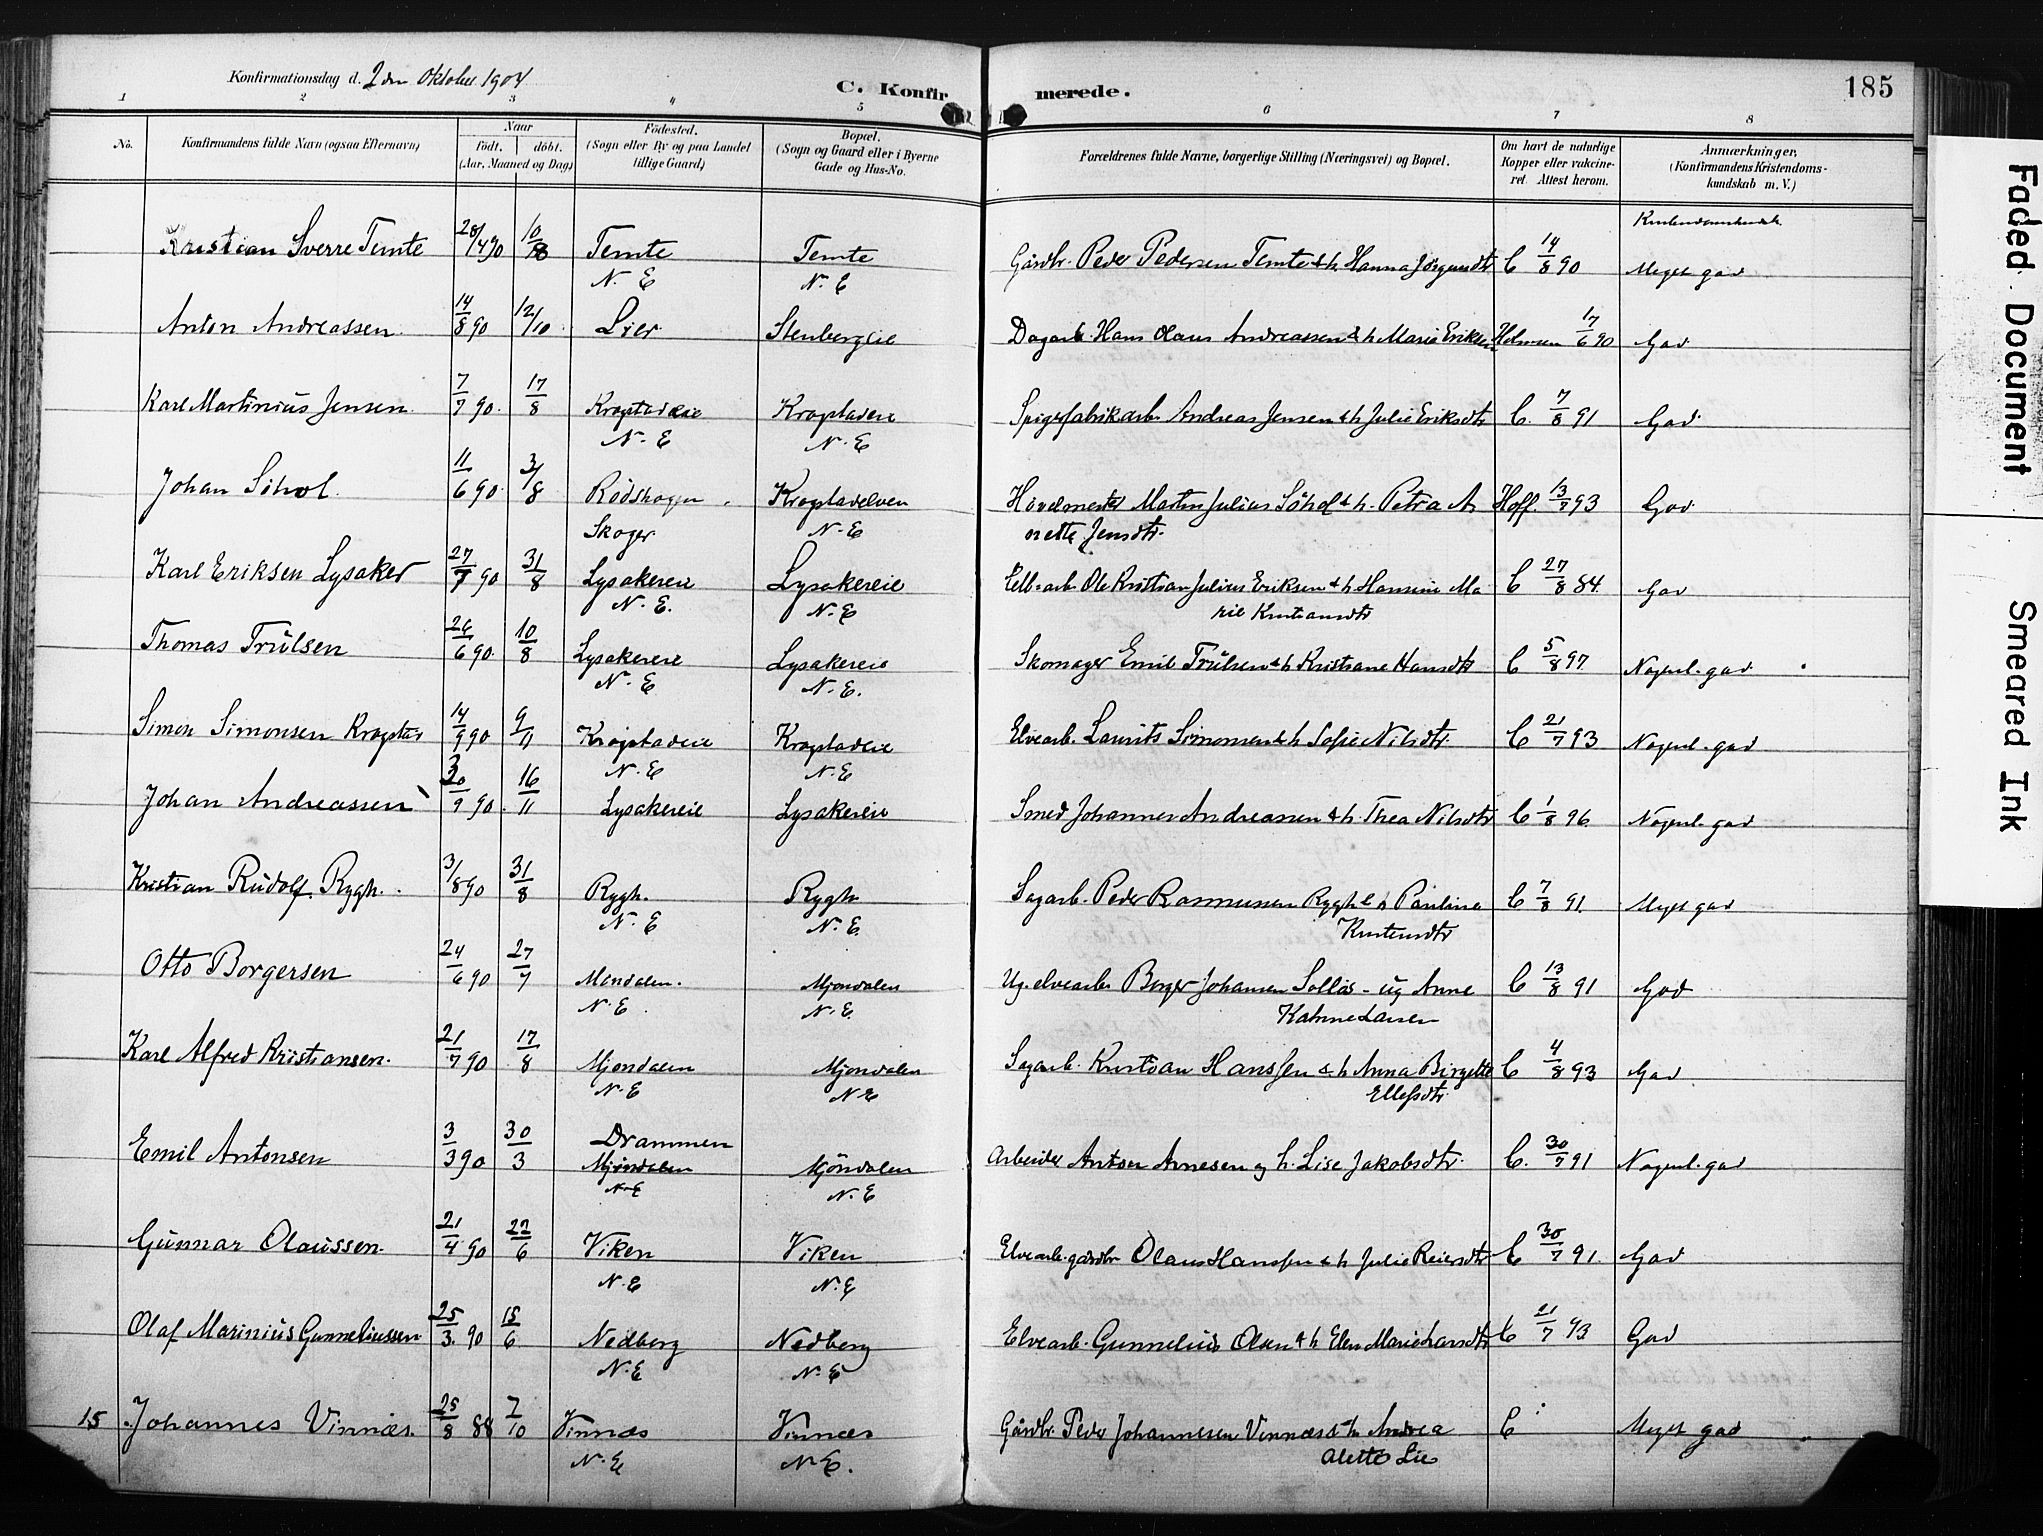 Konfirmationsdag d. 2den Oktober 1904
C. Konfirmerede.
185
1 2 3 4 5 6 7 8
No.
Konfirmandens fulde Navn (ogsaa Efternavn)
Naar
født. døbt.
(Aar, Maaned og Dag)
Fødested.
(Sogn eller By og paa Landet
tillige Gaard)
Bopæl.
(Sogn og Gaard eller i Byerne
Gade og Hus-No.
Forældrenes fulde Navne, borgerlige Stilling (Næringsvei) og Bopæl.
Om havt de naturlige
Kopper eller vakcine-
ret. Attest herom.
Anmærkninger,
(Konfirmandens Kristendoms-
kundskab m. V.)
Kristian Sverre Temte 28/4 90 10/8 Temte Temte Gårdbr. Peder Pedersen Temte & h. Hanna Jörgensdtr C 14/8 90 Meget god
N. E N. E
Anton Andreassen 14/8 90 12/10 Lier Stenbergeie Dagarb. Hans Olaus Andreassen & h Marie Eriksen Holmsen 17/6 90 God
Karl Martinius Jensen 7/7 90 17/8 Krogstadeie Krogstadeie Spigerfabrikarb. Andreas Jensen & h Julie Eriksdtr C. 7/8 91 God
N. E N. E
Johan Söhol 11/6 90 3/8 Rödskogen Krogstadelven Hövelmester Martin Julius Söhol & h. Petra A Hoff. 13/7 93 God
Skoger N. E nette Jensdtr.
Karl Eriksen Lysaker 27/7 90 31/8 Lysakereie Lysakereie Cell-arb. Ole Kristian Julius Eriksen & h Hansine Ma C 27/8 84 God
N. E. N. E rie Kristiansdtr
Thomas Trulsen 26/6 90 10/8 Lysakereie Lysakereie Skomager Emil Trulsen & h Kristiane Hansdtr C 5/8 97 Nogenl. god
N. E N. E.
Simon Simonsen Krogstad 14/9 90 9/11 Krogstadeie Krogstadeie Elvearb. Laurits Simonsen & h Sofie Nilsdtr. C 21/7 93 Nogenl. god
N. E N. E
Johan Andreassen 30/9 90 16/11 Lysakereie Lysakereie Smed Johannes Andreassen & h. Thea Nilsdtr C 1/8 96 Nogenl. god
Kristian Rudolf Rygh 3/8 90 31/8 Rygh. Rygh Sagarb. Peder Rasmussen Rygh & h Pauline C 7/8 91. Meget god
N. E N. E. Kristensdtr
Otto Borgersen 24/6 90 27/7 Möndalen. Mjöndalen Ug. elvearb. Borger Johansen Sollös - ug Anne C 13/8 91 God
N. E. N. E. Katrine Larsen
Karl Alfred Kristiansen. 21/7 90 17/8 Mjöndalen Mjöndalen Sagarb. Kristian Hanssen & h Anna Birgette C 4/8 93 God
N. E N. E Ellefsdtr
Drammen
Emil Antonsen 3/3 90 30/3 Mjöndalen Mjöndalen Arbeider Anton Arnesen og h. Lise Jakobsdtr. C. 30/7 91 Nogenl. god
N. E N. E
Gunnar Olaussen. 21/4 90 22/6 Viken Viken Elvearb. gårdbr Olaus Hanssen & h Julie Reiersdtr C 30/7 91. God
N. E N. E
Olaf Marinius Gunneliussen 25/3 90 15/6 Nedberg Nedberg Elvearb. Gunnelius Olsen & h Elen Marie Larsdtr C 21/7 93 God
N. E N. E
15 Johannes Vinnæs. 25/8 88 7/10 Vinnæs Vinnæs Gårdbr. Peder Johannesen Vinnæs & h Andrea C Meget god
N. E N. E. Alette Lie
Faded Document
Smeared Ink